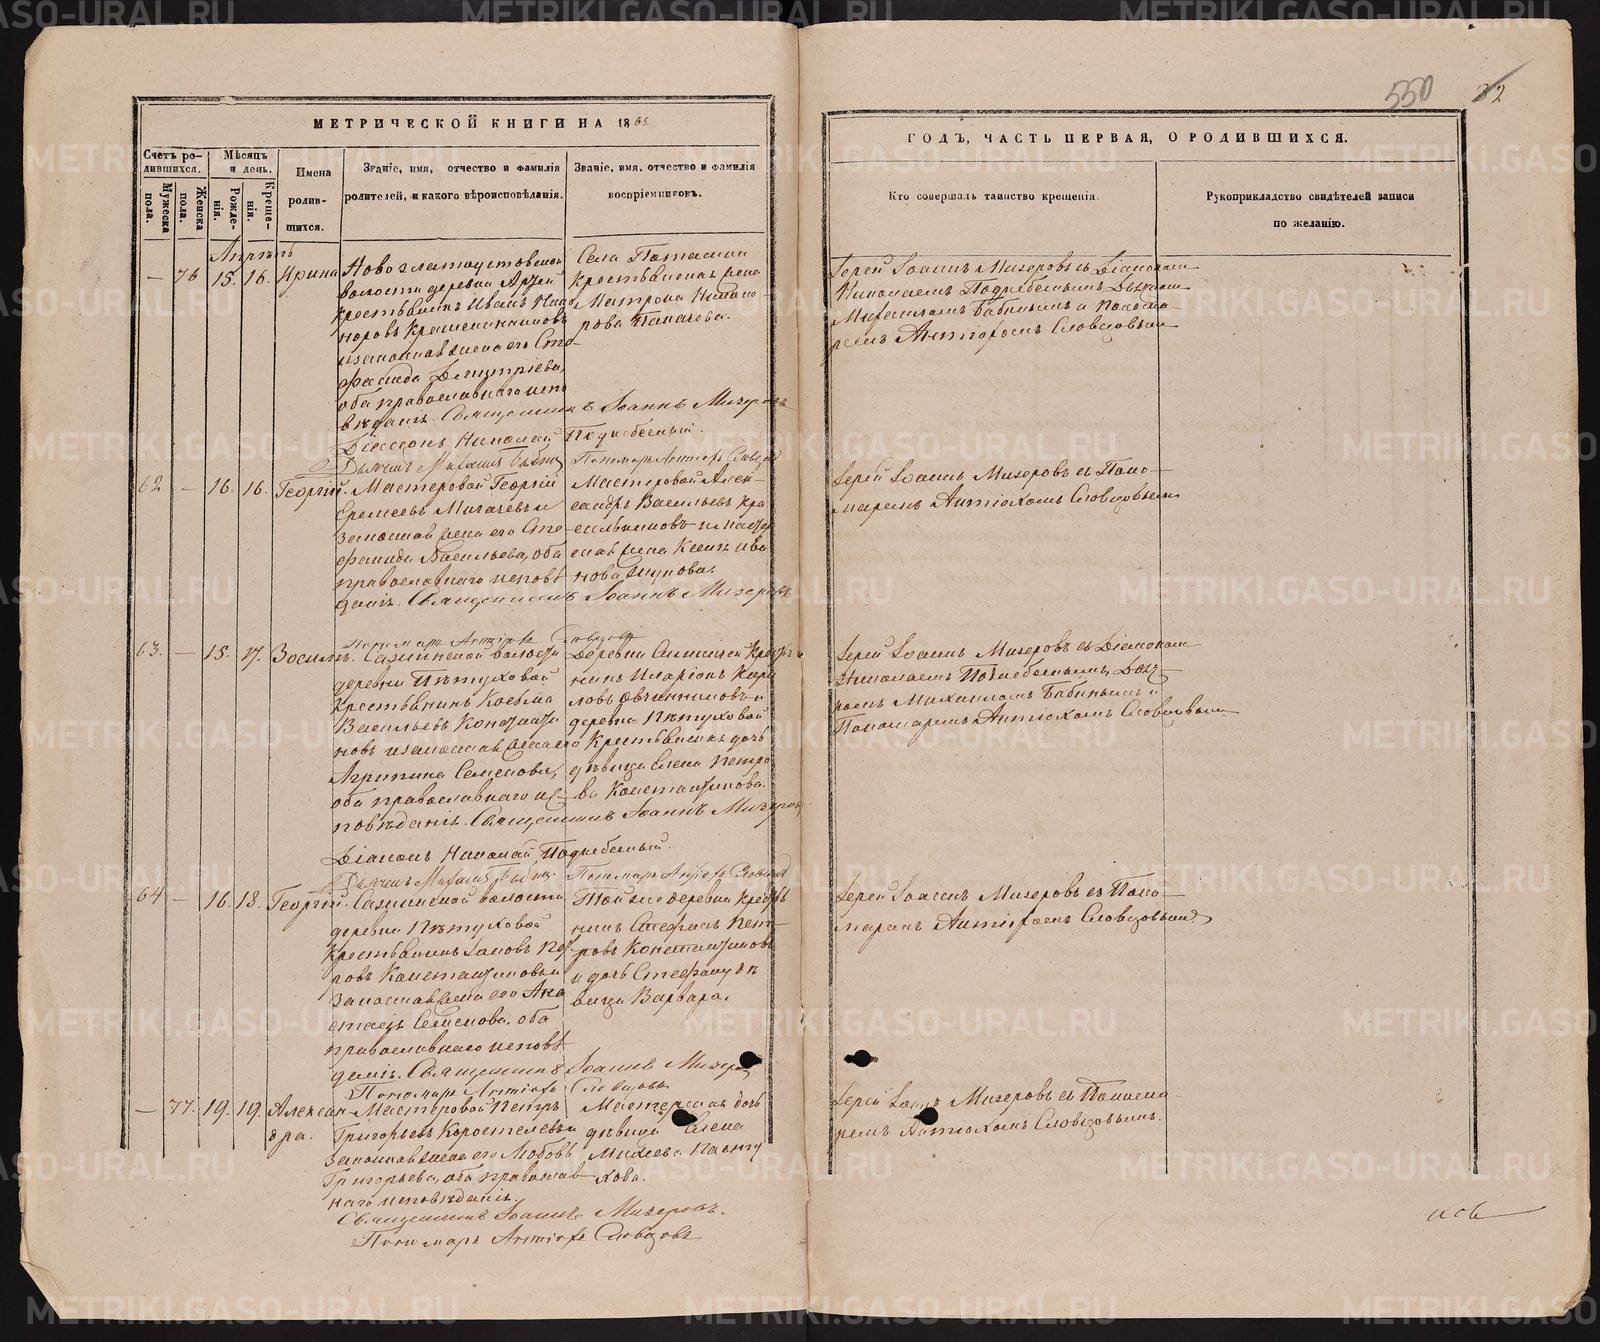 550 32
МЕТРИЧЕСКОЙ КНИГИ НА 186
ГОДЪ, ЧАСТЬ ПЕРВАЯ, О РОДИВШИХСЯ.
Счетъ родившихся.
Мужеска пола.
Женска пола.
Мѣсяцъ и день.
Рожденія.
Крещенія.
Имена родившихся.
Званіе, имя, отчество и фамилія родителей, и какого вѣроисповѣданія.
Званіе, имя, отчество и фамилія воспріемниковъ.
Кто совершалъ таинство крещенія.
Рукоприкладство свидѣтелей записи по желанію.
Апрѣль
— 76 15. 16. Ирина
Новозлатоустовской
волости деревни Артей
крестьянинъ Иванъ Ника-
норовъ Крашенинниковъ
и законная жена его Сте-
фанида Димитріева,
оба православнаго испо
вѣданія. Священникъ Іоаннъ Мизеровъ
Діаконъ Николай Поднебесный.
Дьячекъ Михаилъ Бабинъ Пономарь Антіохъ Словцовъ
Села Поташки
крестьянская жена
Матрона Никано-
рова
Іерей Іоаннъ Мизеровъ съ Діакономъ
Николаемъ Поднебеснымъ, Дьячкомъ
Михаиломъ Бабинымъ и Понома-
ремъ Антіохомъ Словцовымъ
62 — 16. 16. Георгій.
Мастеровой Георгій
Еремеевъ и
законная жена его Сте-
фанида Васильева, оба
православнаго исповѣ
данія. Священникъ Іоаннъ Мизеровъ
Пономарь Антіохъ Словцовъ
Мастеровой Алек-
сандръ Васильевъ Кра
сильниковъ и мастер
ская жена Ксенія Ива
нова
Іерей Іоаннъ Мизеровъ съ Поно-
маремъ Антіохомъ Словцовымъ
63. — 15. 17. Зосимъ.
Сажинской волости
деревни Пѣтуховой
крестьянинъ Козьма
Васильевъ Константи
новъ и законная жена его
Агрипина Семенова,
оба православнаго ис-
повѣданія. Священникъ Іоаннъ Мизеровъ
Діаконъ Николай Поднебесный.
Дьячекъ Михаилъ Бабинъ Пономарь Антіохъ Словцовъ
Деревни крестья
нинъ Иларіонъ Кири
ловъ Овчинниковъ и
деревни Пѣтуховой
крестьянская дочь
дѣвица Елена Петро
ва Константинова.
Іерей Іоаннъ Мизеровъ съ Діакономъ
Николаемъ Поднебеснымъ, Дьяч-
комъ Михаиломъ Бабинымъ и
Пономаремъ Антіохомъ Словцовымъ
64 — 16. 18. Георгій.
Сажинской волости
деревни Пѣтуховой
крестьянинъ Іаковъ Пет
ровъ Константиновъ и
законная жена его Ана
стасія Семенова, оба
православнаго исповѣ
данія. Священникъ Іоаннъ Мизеровъ
Пономарь Антіохъ Словцовъ
Той же деревни крестья
нинъ Стефанъ Пет-
ровъ Константиновъ
и дочь Стефану дѣ
вица Варвара.
Іерей Іоаннъ Мизеровъ съ Поно-
маремъ Антіохомъ Словцовымъ
— 77. 19. 19. Алексан-
дра.
Мастеровой Петръ
Григорьевъ Коростелевъ и
законная жена его Любовь
Григорьева, оба православ
наго исповѣданія.
Священникъ Іоаннъ Мизеровъ.
Пономарь Антіохъ Словцовъ
Мастерская дочь
дѣвица Елена
Михеева
хова.
Іерей Іоаннъ Мизеровъ съ Понома-
ремъ Антіохомъ Словцовымъ.
METRIKI.GASO-URAL.RU